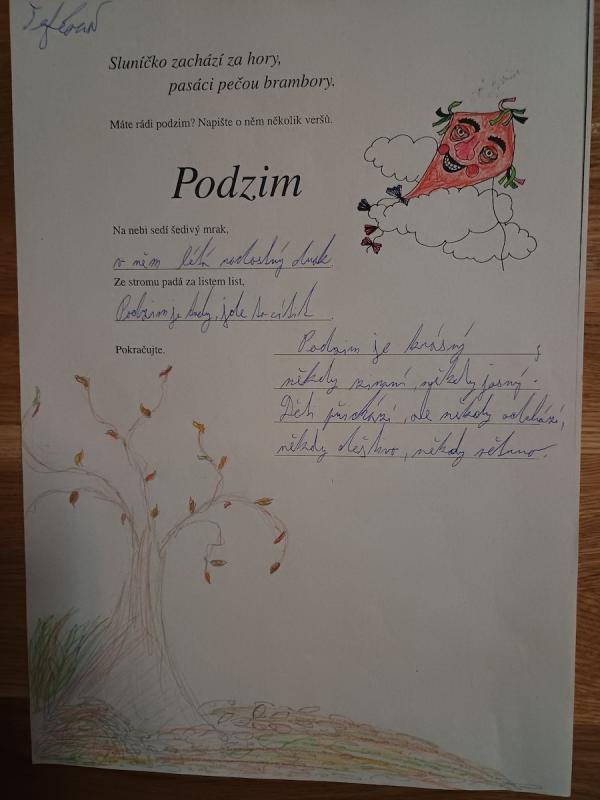 Sluníčko zachází za hory,
pasáci pečou brambory.
Máte rádi podzim? Napište o něm několik veršů.
Podzim
Na nebi sedí šedivý mrak,
v něm létá radostný drak
Ze stromu padá za listem list,
Podzim je tady, jde to cítit
Pokračujte.
Podzim je krásný
někdy, někdy jasný.
přichází, ale někdy odchází,
někdy deštivo, někdy větrno.